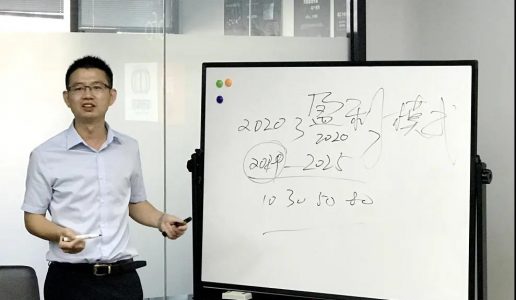 2020 3 盈利模式
2020
2019 — 2025
10 30 50 80